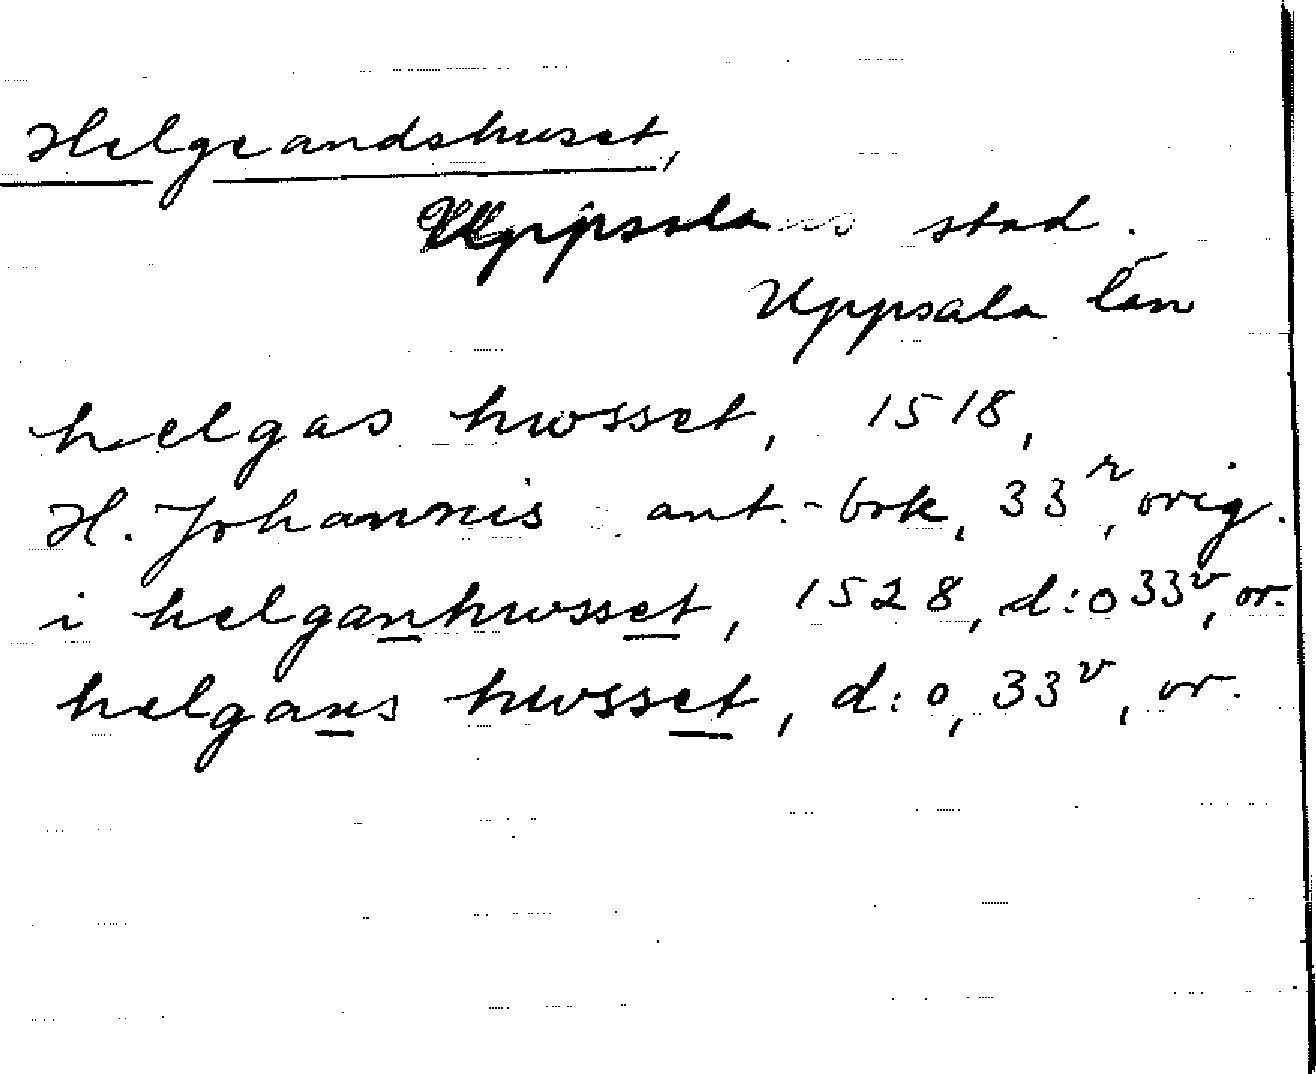 Helgeandshuset,
Uppsala stad.
Uppsala län
helgas hwsset, 1518,
H. Johannis ant.-bok, 33r, orig.
i helganhwsset, 1528, d:o 33v, or.
helgans hwsset, d:o, 33v, or.